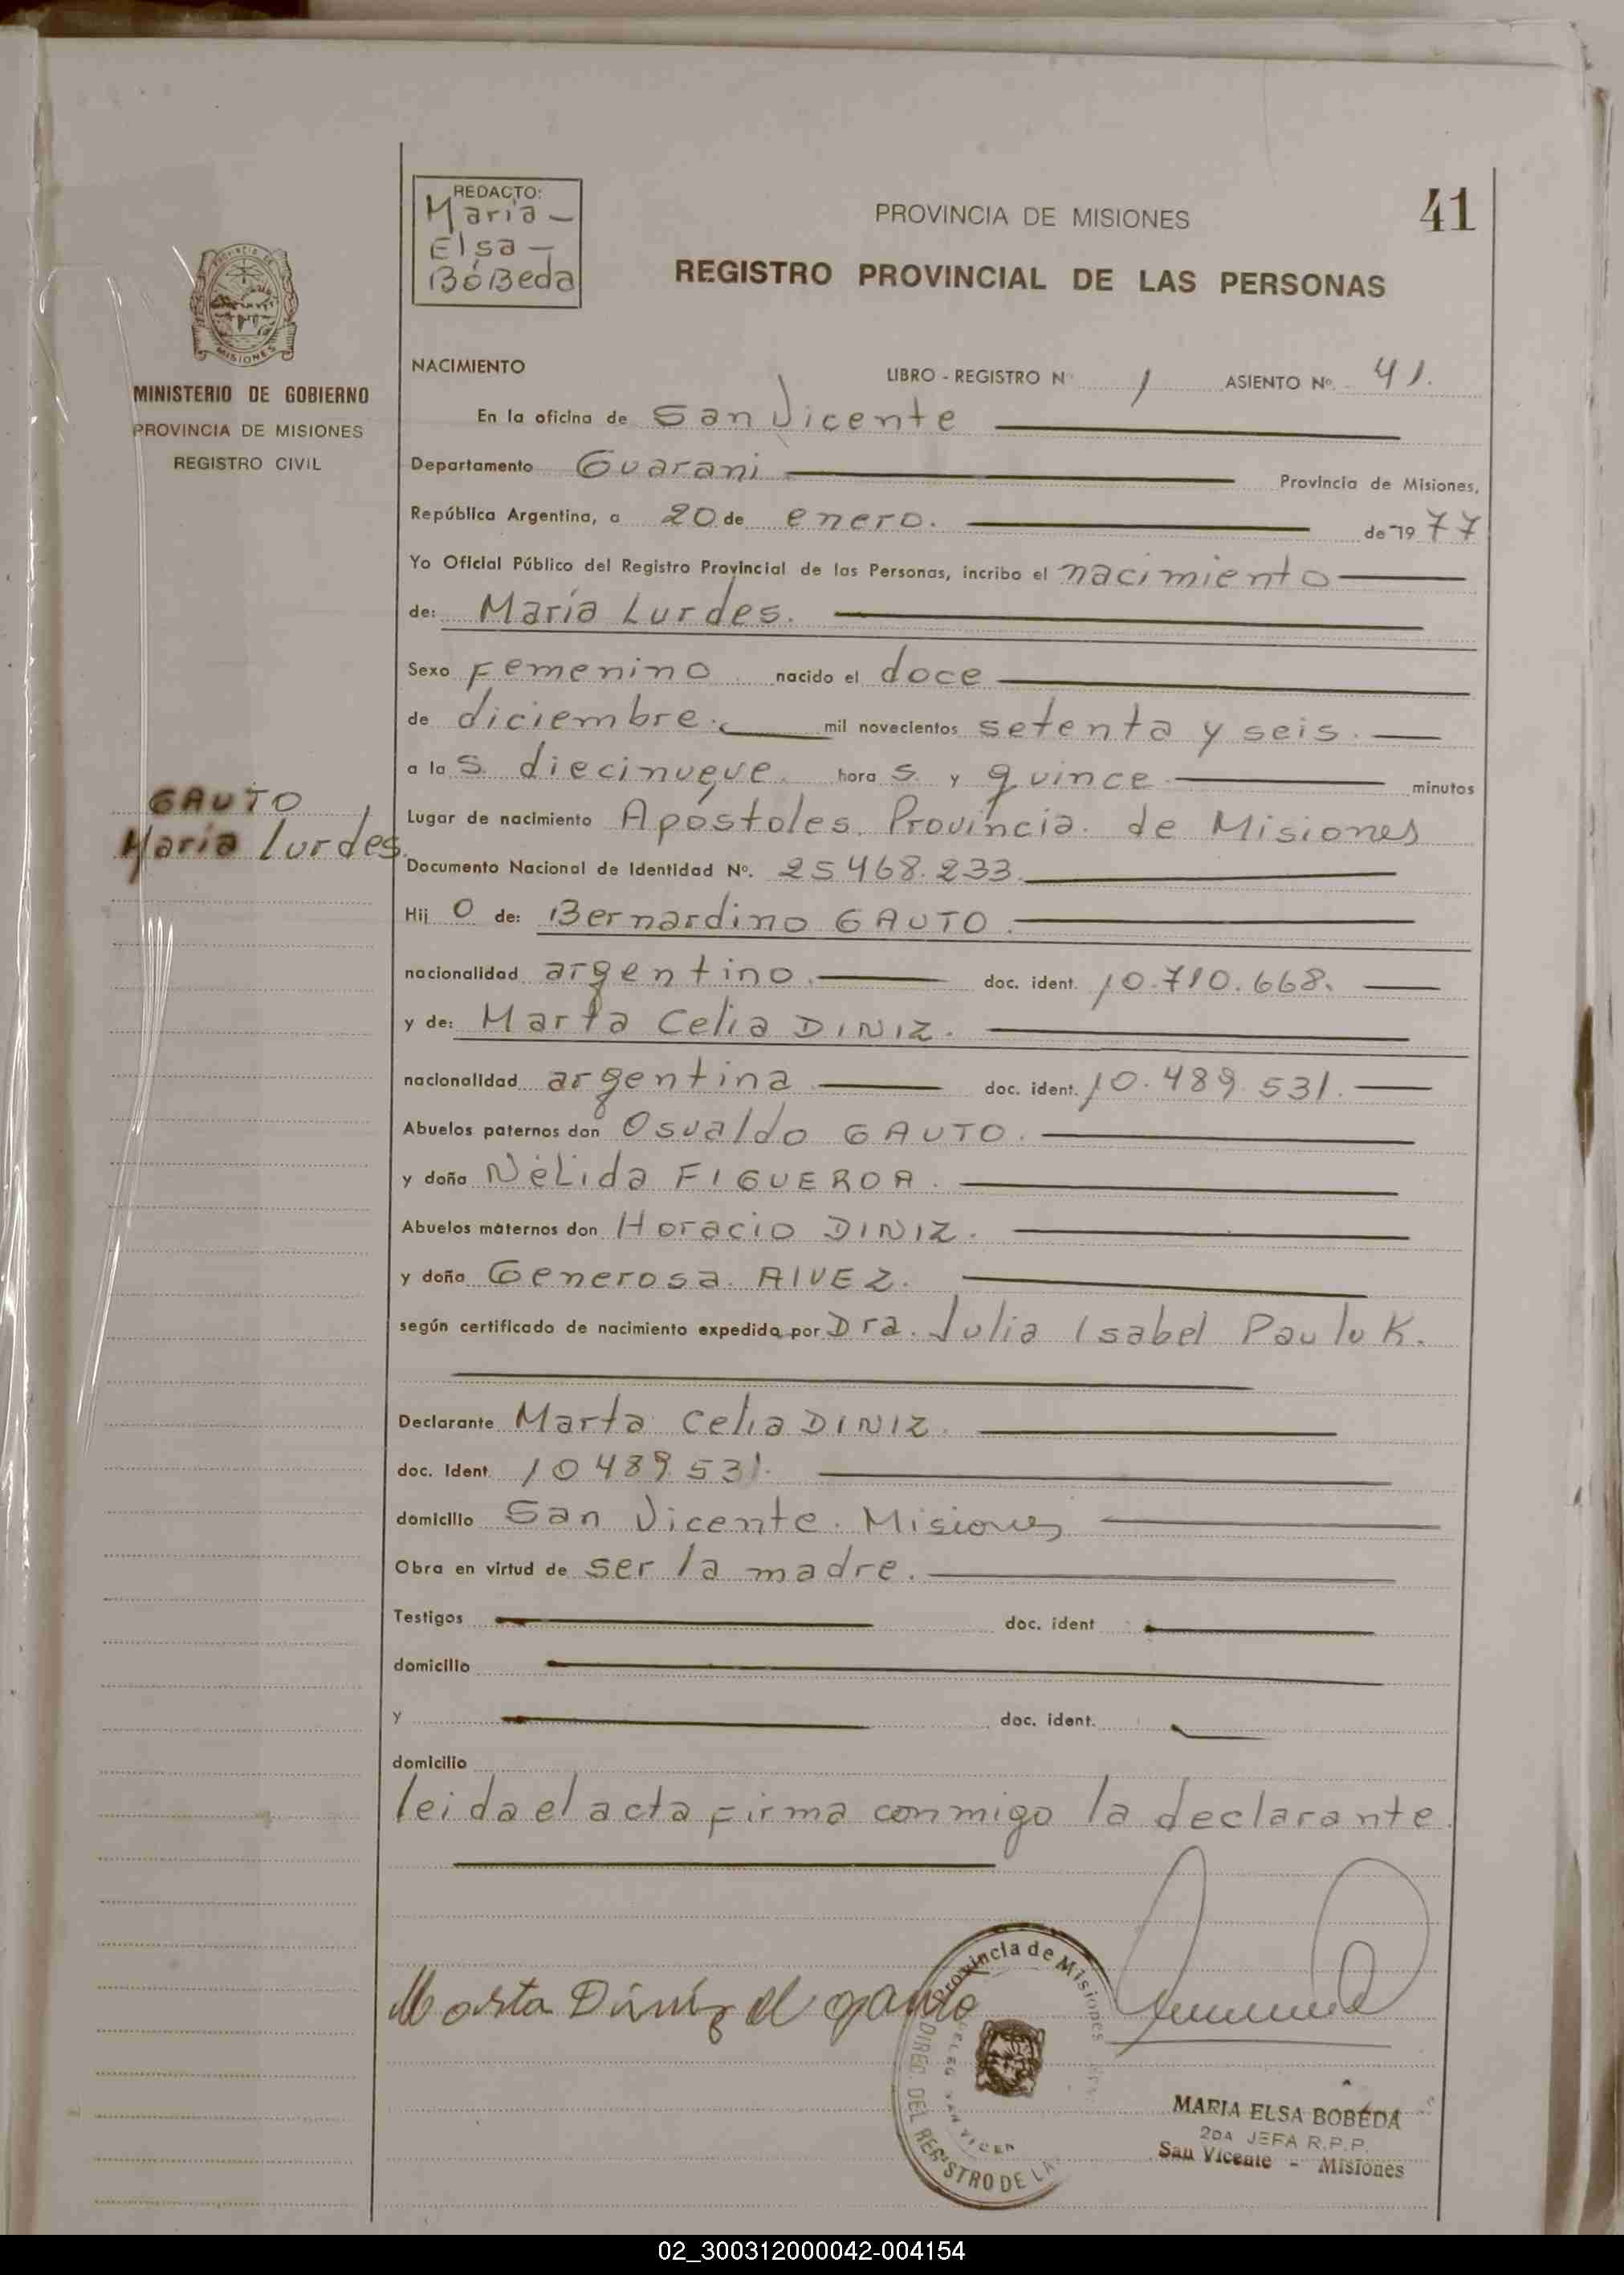 REDACTO:
Maria -
Elsa -
BóBeda
PROVINCIA DE MISIONES
41
REGISTRO PROVINCIAL DE LAS PERSONAS
PROVINCIA DE
MISIONES
MINISTERIO DE GOBIERNO
PROVINCIA DE MISIONES
REGISTRO CIVIL
NACIMIENTO
LIBRO - REGISTRO Nº 1 ASIENTO Nº. 41.
En la oficina de San Vicente
Departamento Guarani Provincia de Misiones,
República Argentina, a 20 de enero. de 1977
Yo Oficial Público del Registro Provincial de las Personas, incribo el nacimiento
de: María Lurdes.
Sexo Femenino nacido el doce
de diciembre. mil novecientos setenta y seis.
a las diecinueve. horas y quince minutos
GAUTO
María Lurdes.
Lugar de nacimiento Apóstoles. Provincia. de Misiones
Documento Nacional de Identidad Nº. 25468.233.
Hij O de: Bernardino GAUTO.
nacionalidad argentino. doc. ident. 10.710.668.
y de: Marta Celia DINIZ.
nacionalidad argentina doc. ident. 10.489.531.
Abuelos paternos don Osvaldo GAUTO.
y doña NéLida FIGUEROA.
Abuelos maternos don Horacio DINIZ.
y doña Generosa. AlVEZ.
según certificado de nacimiento expedido por Dra. Julia Isabel Pauluk.
Declarante Marta Celia DINIZ.
doc. Ident. 10489.531.
domicilio San Vicente. Misiones
Obra en virtud de ser la madre.
Testigos doc. ident
domicilio
y doc. ident.
domicilio
leida el acta firma conmigo la declarante.
Marta Diniz de gauto
Provincia de Misiones
DIREC. DEL REGISTRO DE LA
MARIA ELSA BOBEDA
2DA JEFA R.P.P.
San Vicente - Misiones
02_300312000042-004154